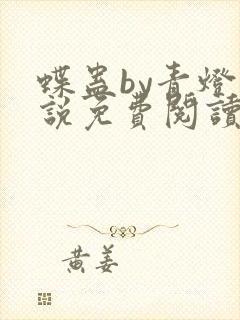 蝶蛊by青燈
說免費閱讀
黃姜